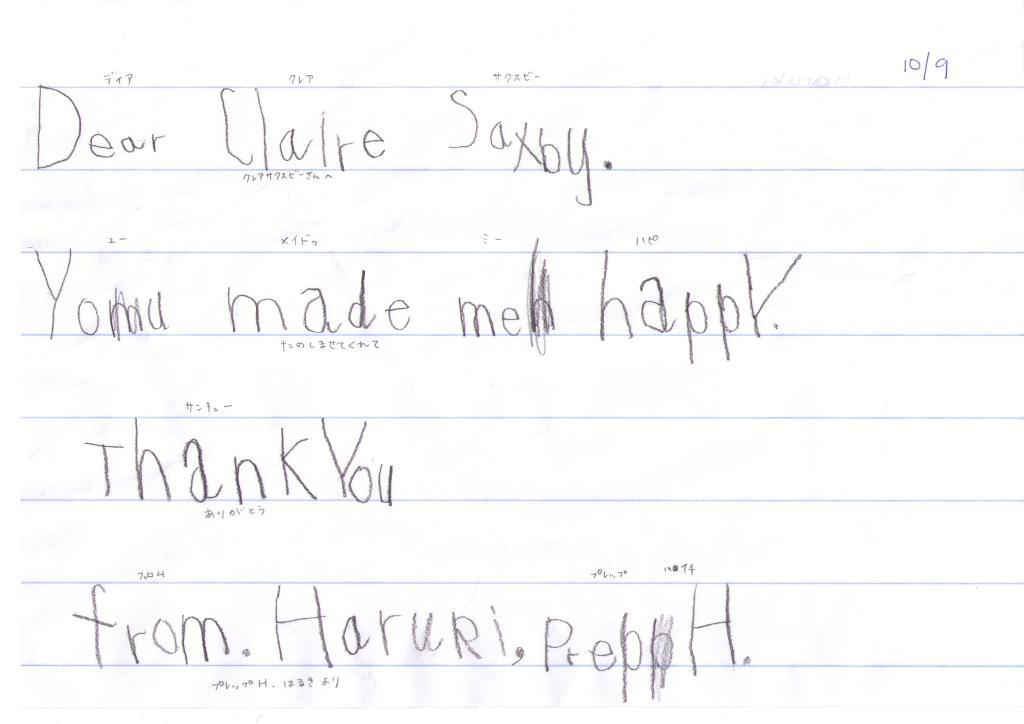 10/9
ディア クレア サクスビー
Dear Claire Saxby.
クレアサクスビーさんへ
ユー メイドゥ ミー ハピ
You made me happY.
たのしませてくれて
サンキュー
Thank You
ありがとう
フロム プレップ エイチ
from. Haruki, Prep H.
プレップH. はるき より